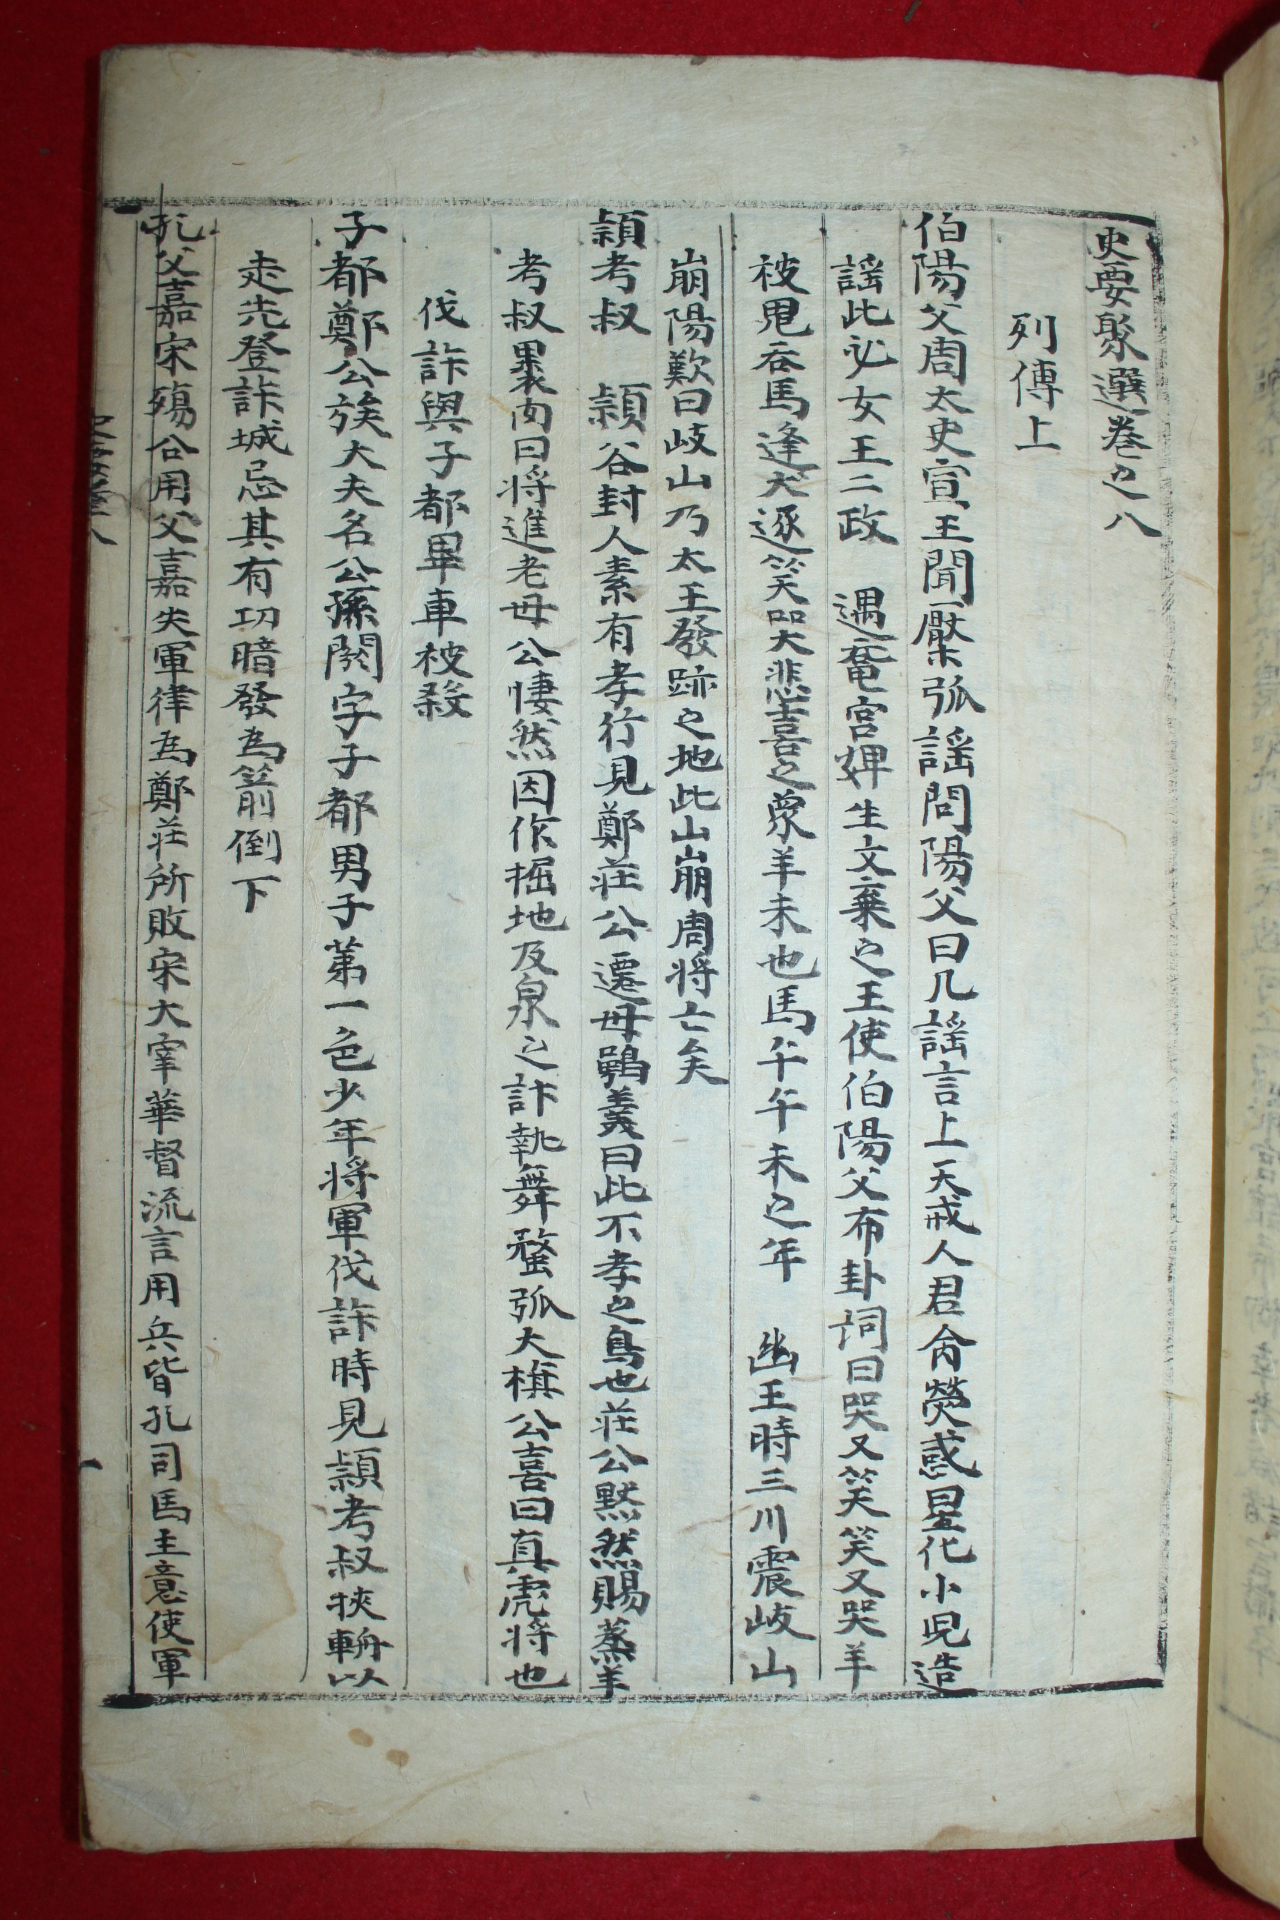 史要聚選卷之八
列傳上
伯陽父周太史宣王聞檿弧謠問陽父曰凡謠言上天戒人君命熒惑星化小児造
謠此必女王二政 遇奄宮婢生文棄之王使伯陽父布卦詞曰哭又笑笑又哭羊
被鬼吞馬逢犬逐笑㗊大悲喜之象羊未也馬午午未之年 幽王時三川震岐山
崩陽歎曰岐山乃太王發跡之地此山崩周將亡矣
潁考叔 潁谷封人素有孝行見鄭莊公遷母鶚義曰此不孝之鳥也莊公黙然賜蒸羊
考叔裹肉曰將進老母公悽然因作掘地及泉之計執舞蝥弧大旗公喜曰真虎將也
伐許與子都畢車被殺
子都鄭公族大夫名公孫閼字子都男子第一色少年將軍伐許時見潁考叔挾輈以
走先登許城忌其有功暗發為箭倒下
孔父嘉宋殤公用父嘉失軍律為鄭莊所敗宋大宰華督流言用兵皆孔司馬主意使軍